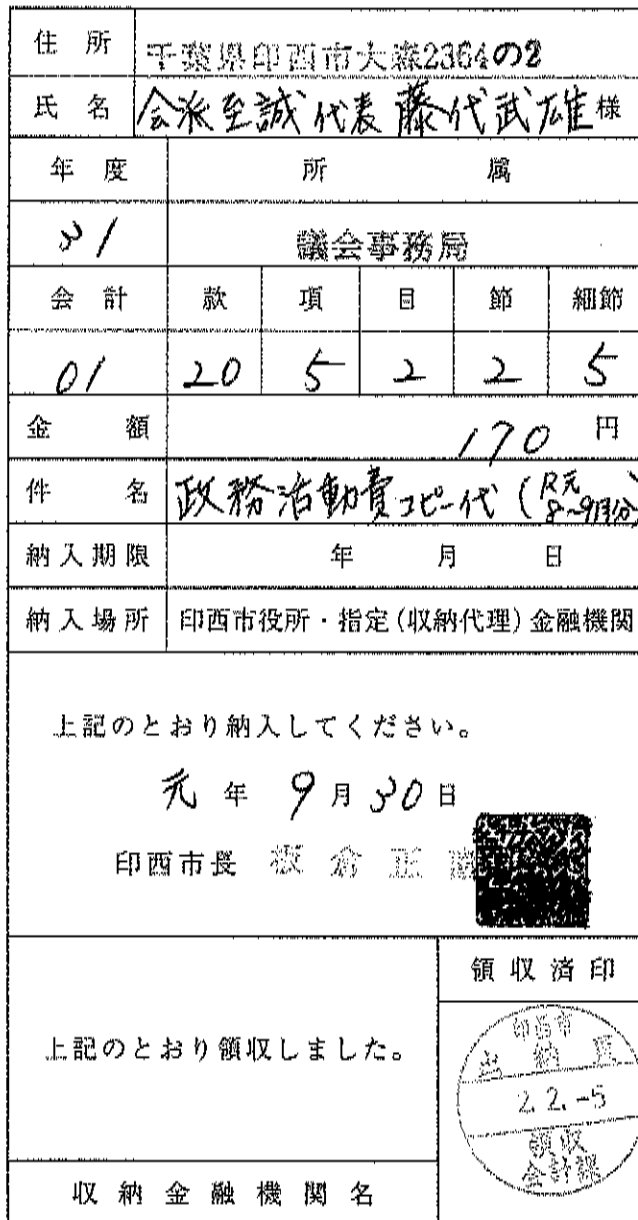 住所 千葉県印西市大森2364の2
氏名 会派至誠代表 藤代武雄様
年度 所属
31 議会事務局
会計 款 項 目 節 細節
01 20 5 2 2 5
金額 170 円
件名 政務活動費コピー代(R元 8~9月分)
納入期限 年 月 日
納入場所 印西市役所・指定(収納代理)金融機関
上記のとおり納入してください。
元年 9月30日
印西市長 板倉正
領収済印
上記のとおり領収しました。
印西市
出納員
2.2.-5
領収
会計課
収納金融機関名